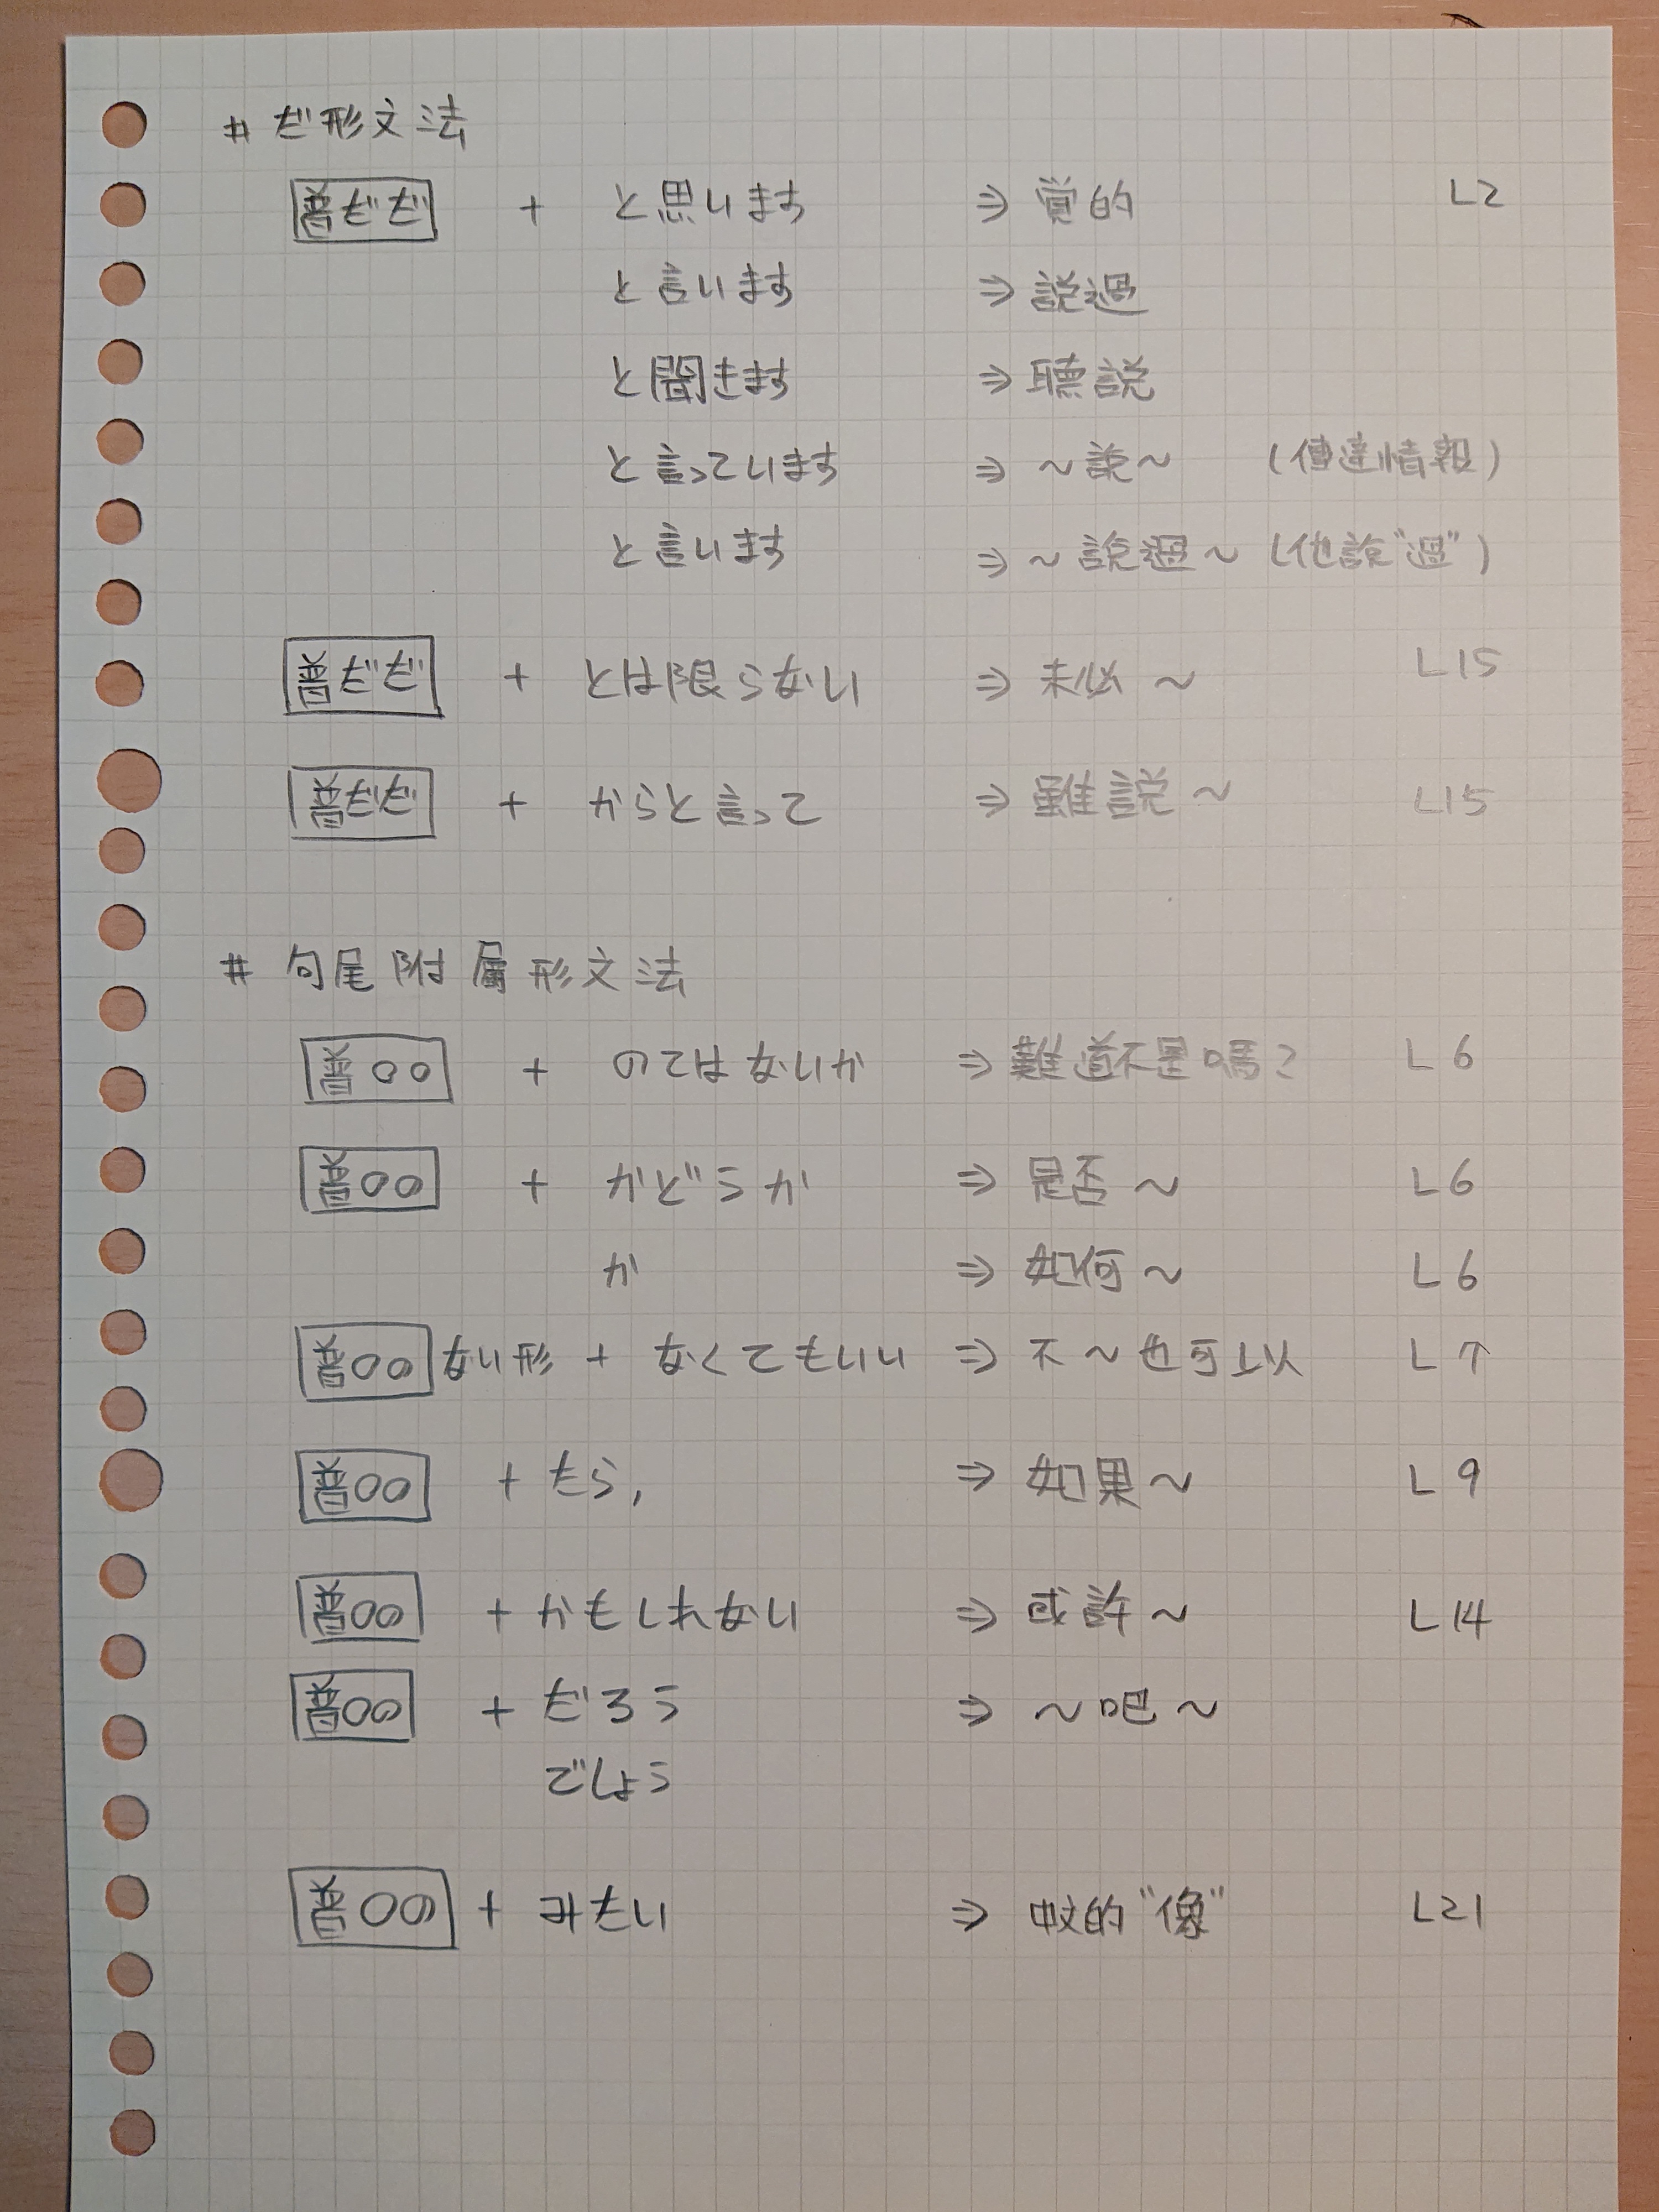 # だ形文法
普だだ + と思います ⇒ 覚的 L2
と言います ⇒ 説過
と聞きます ⇒ 聽説
と言っています ⇒ ~説~ (傳達情報)
と言います ⇒ ~説過~ (他説"過")
普だだ + とは限らない ⇒ 未必~ L15
普だだ + からと言って ⇒ 雖説~ L15
# 句尾附屬形文法
普○○ + のではないか ⇒ 難道不是嗎? L6
普○○ + かどうか ⇒ 是否~ L6
か ⇒ 如何~ L6
普○○ ない形 + なくてもいい ⇒ 不~也可以 L7
普○○ + たら, ⇒ 如果~ L9
普○○ + かもしれない ⇒ 或許~ L14
普○○ + だろう ⇒ ~吧~
でしょう
普○の + みたい ⇒ 的"像" L21